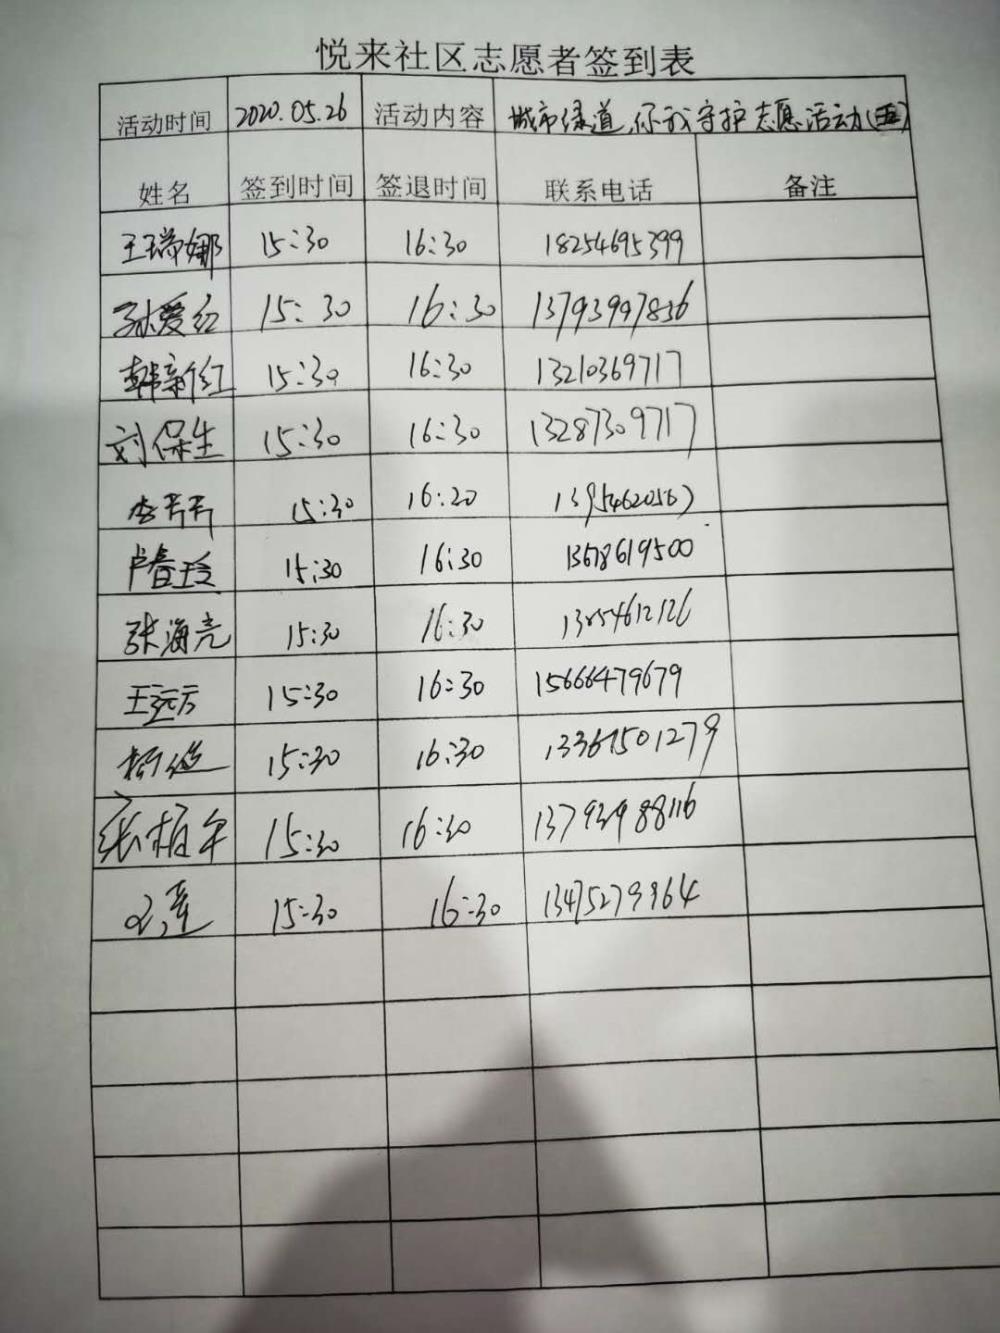 悦来社区志愿者签到表
活动时间 2020.05.26 活动内容 城市绿道,你我守护志愿活动(五)
姓名 签到时间 签退时间 联系电话 备注
王瑞娜 15:30 16:30 18254695399
孙爱红 15:30 16:30 13793997836
韩新红 15:30 16:30 13210369717
刘保生 15:30 16:30 13287309717
15:30 16:20 13954620567
卢春玲 15:30 16:30 13678619500
张海亮 15:30 16:30 13854612126
王远方 15:30 16:30 15666479679
15:30 16:30 13361501279
张植年 15:30 16:30 13793988116
15:30 16:30 13475279964